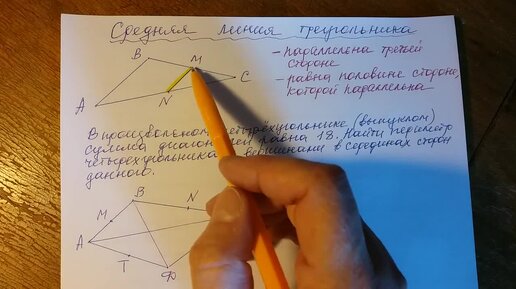 Средняя линия треугольника
B
M
C
A
N
- параллельна третьей
стороне
- равна половине стороне,
которой параллельна
В произвольном четырёхугольнике (выпуклом)
сумма равна 18. Найти периметр
четырёхугольника вершинами в серединах сторон
данного.
B
N
M
A
T
D